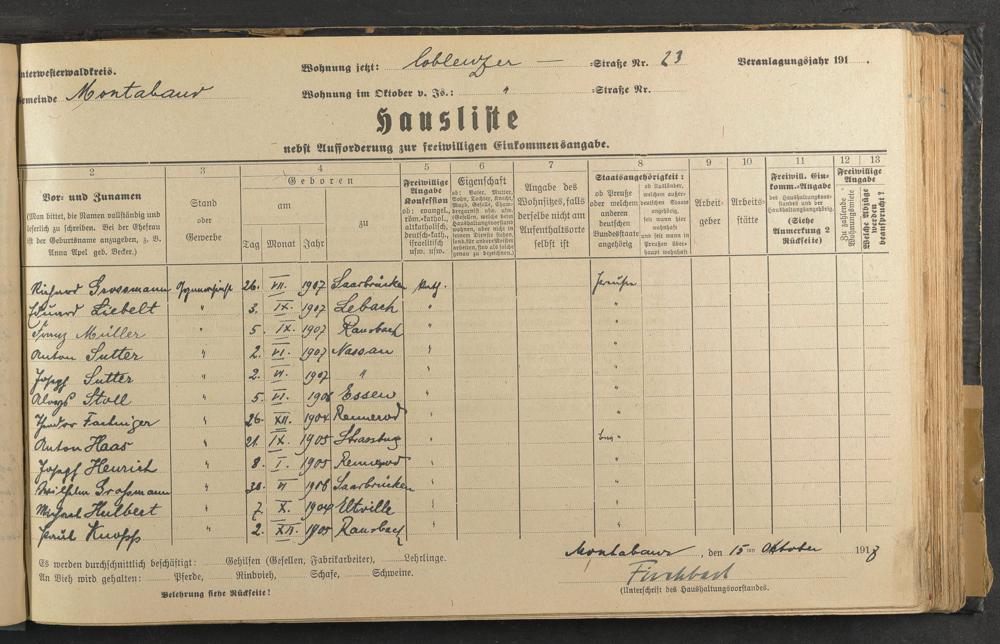 nterwesterwaldkreis. Wohnung jetzt: Coblenzer — =Straße Nr. 23 Veranlagungsjahr 191 .
emeinde Montabaur Wohnung im Oktober v. Js.: " =Straße Nr.
Hausliste
nebst Aufforderung zur freiwilligen Einkommensangabe.
2 3 4 5 6 7 8 9 10 11 12 13
Vor= und Zunamen
(Man bittet, die Namen vollständig und
leserlich zu schreiben. Bei der Ehefrau
ist der Geburtsname anzugeben, z. B.
Anna Apel geb. Becker.)
Stand
oder
Gewerbe
Geboren
am zu
Tag Monat Jahr
Freiwillige
Angabe
Konfession
ob: evangel.,
röm.=kathol.,
altkatholisch,
deutsch=kath.,
israelitisch
usw. usw.
Eigenschaft
Angabe des
Wohnsitzes, falls
derselbe nicht am
Aufenthaltsorte
selbst ist
Staatsangehörigkeit:
ob Preuße
oder welchem
anderen
deutschen
Bundesstaate
angehörig
ob Ausländer,
welchem außer=
deutschen Staate
angehörig,
seit wann hier
wohnhaft
und seit wann in
Preußen über=
haupt wohnhaft
Arbeit=
geber
Arbeits=
stätte
Freiwill. Ein=
komm.=Angabe
des Haushaltungsvor=
standes und der
Haushaltungsangehörig.
(Siehe
Anmerkung 2
Rückseite)
Freiwillige
Angabe
Zu zahlende
Wohnungsmiete
Welche Abzüge
werden
beansprucht?
Richard Grossmann 26. VII. 1907 Saarbrücken
Eduard Liebelt " 3. IX. 1907 Lebach " "
Franz Müller " 5. IX. 1907 Ransbach " "
Anton Sutter " 2. VI. 1907 Nassau " "
Josef Sutter " 2. VI. 1907 " "
Aloys Stoll " 5. VI. 1906 Essen " "
" 26. XII. 1904 Rennerod " "
Anton Haas " 21. IX. 1905 Strassburg "
Josef Henrich " 8. I. 1905 Rennerod " "
Wilhelm Großmann " VI 1906 Saarbrücken " "
Michael Hulbert " 7. X. 1904 Eltville " "
Paul Knopp " 2. XII. 1905 Ransbach " "
Es werden durchschnittlich beschäftigt: Gehilfen (Gesellen, Fabrikarbeiter), Lehrlinge.
An Vieh wird gehalten: Pferde, Rindvieh, Schafe, Schweine.
Belehrung siehe Rückseite!
Montabaur, den 15 ten Oktober 1918
Fischbach
(Unterschrift des Haushaltungsvorstandes.